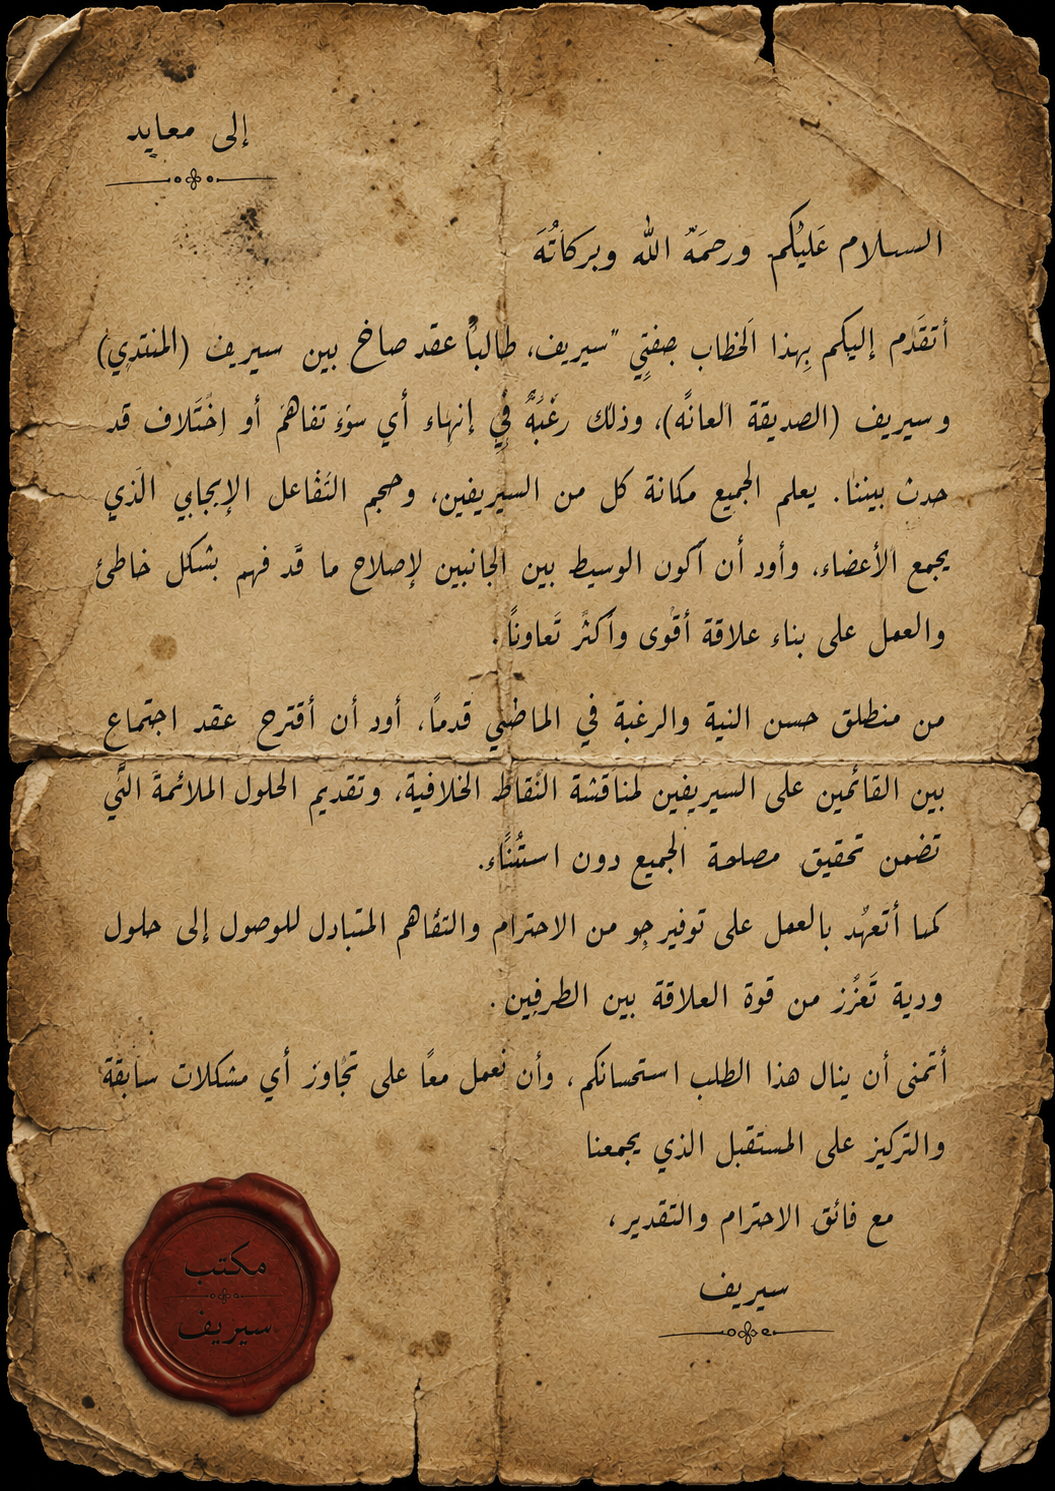 إلى معايد
السلام عَليْكُم ورحمَةُ الله وبركاتُهَ
أتقَدَم إليكم بِهذا اَلخطاب بصفتِي "سيريف، طالباً عقد صاخ بين سيريف (المنتدِي)
وسيريف (الصديقة العانَه)، وذلك رغْبَةً فِي إنهاء أي سوَء تفاهَم أو اخْتَلاف قد
حدث بيننا. يعلم الجميع مكانة كل من السيريفين، وحجم التَفاعل الإيجابي الَذي
يجمع الأعضاء، وأود أن أكون الوسيط بين الجانبين لإصلاح ما قَد فهم بشكل خاطئ
والعمل على بناء علاقة أقْوى وأكثَر تَعاوناً.
من منطلق حسن النية والرغبة في الماضي قدماً، أود أن أقترح عقد اجتماع
بين القائمين على السيريفين لمناقشة النَقاط الخلافية، وتقديم الحلول الملائمة التَي
تضمن تحقيق مصلحة الجميع دون استثناء.
كما أتعهُد بالعمل على توفير جو من الاحترام والتفاهم المتبادل للوصول إلى حلول
ودية تَعزُز من قوة العلاقة بين الطرفين.
أتمنى أن ينال هذا الطلب استحسانكم، وأن نعمل معاً على تجاوز أي مشكلات سابقة
والتركيز على المستقبل الذي يجمعنا
مع فائق الاحترام والتقدير،
سيريف
مكتب
سيريف